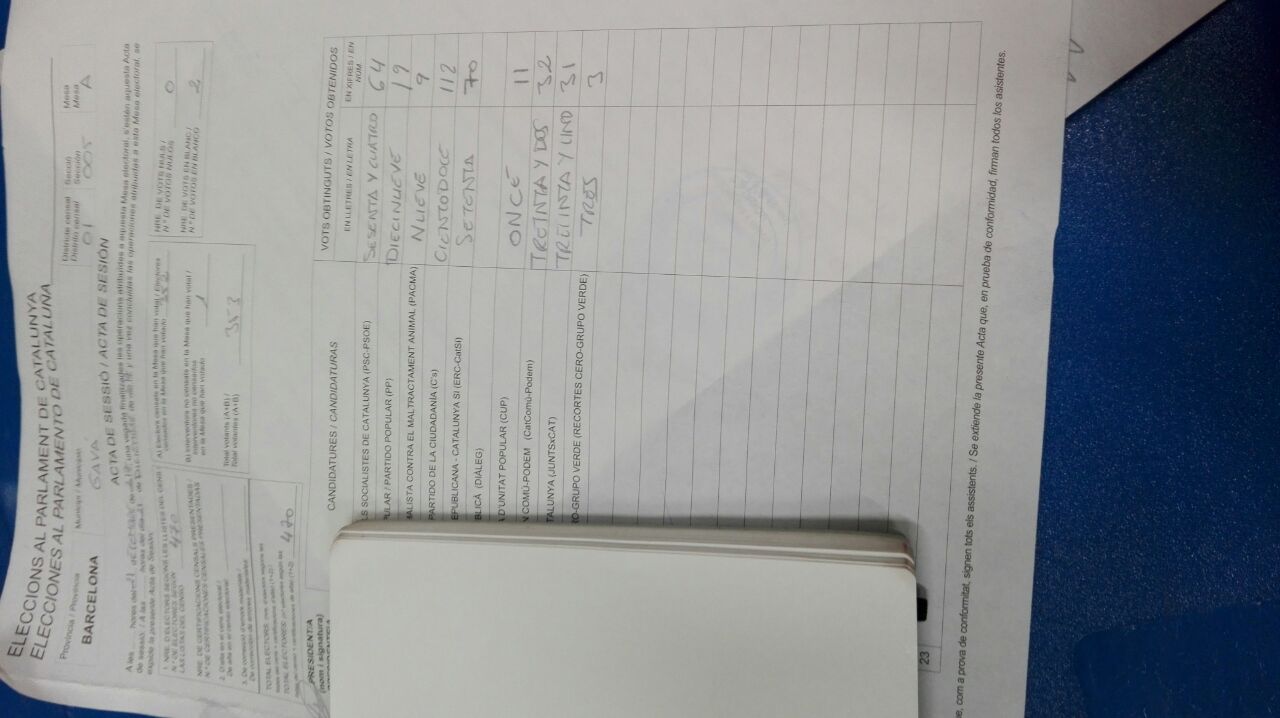 ELECCIONS AL PARLAMENT DE CATALUNYA
ELECCIONES AL PARLAMENTO DE CATALUÑA
Província / Provincia
Municipi / Municipio
Districte censal Secció Mesa
Distrito censal Sección Mesa
BARCELONA GAVA 01 005 A
ACTA DE SESSIÓ / ACTA DE SESIÓN
A les hores del 21 de una vegada finalitzades les operacions atribuïdes a aquesta Mesa electoral, s'estén aquesta Acta
de sessió. / A las horas del día 21 de y una vez concluidas las operaciones atribuidas a esta Mesa electoral, se
expide la presente Acta de Sesión.
1. NRE. D'ELECTORS SEGONS LES LLISTES DEL CENS /
N.º DE ELECTORES SEGÚN
LAS LISTAS DEL CENSO 470
NRE. DE CERTIFICACIONS CENSALS PRESENTADES /
N.º DE CERTIFICACIONES CENSALES PRESENTADAS
2. D'alta en el cens electoral /
De alta en el censo electoral
3. De correcció d'errors materials /
De corrección de errores materiales
TOTAL ELECTORS
TOTAL ELECTORES 470
A) Electors censats en la Mesa que han votat / Electores
censados en la Mesa que han votado 352
B) Interventors no censats en la Mesa que han votat /
Interventores no censados
en la Mesa que han votado 1
Total votants (A+B) /
Total votantes (A+B) 353
NRE. DE VOTS NULS /
N.º DE VOTOS NULOS 0
NRE. DE VOTS EN BLANC /
N.º DE VOTOS EN BLANCO 2
PRESIDENT/A
(nom i signatura)
CANDIDATURES / CANDIDATURAS
VOTS OBTINGUTS / VOTOS OBTENIDOS
EN LLETRES / EN LETRA
EN XIFRES / EN NÚM.
LS SOCIALISTES DE CATALUNYA (PSC-PSOE) SESENTA Y CUATRO 64
ULAR / PARTIDO POPULAR (PP) DIECINUEVE 19
MALISTA CONTRA EL MALTRACTAMENT ANIMAL (PACMA) NUEVE 9
PARTIDO DE LA CIUDADANÍA (C's) CIENTODOCE 112
EPUBLICANA - CATALUNYA SÍ (ERC-CatSí) SETENTA 70
BLICÀ (DIÀLEG)
D'UNITAT POPULAR (CUP) ONCE 11
N COMÚ-PODEM (CatComú-Podem) TREINTA Y DOS 32
TALUNYA (JUNTSxCAT) TREINTA Y UNO 31
RO-GRUPO VERDE (RECORTES CERO-GRUPO VERDE) TRES 3
23
ue, com a prova de conformitat, signen tots els assistents. / Se extiende la presente Acta que, en prueba de conformidad, firman todos los asistentes.